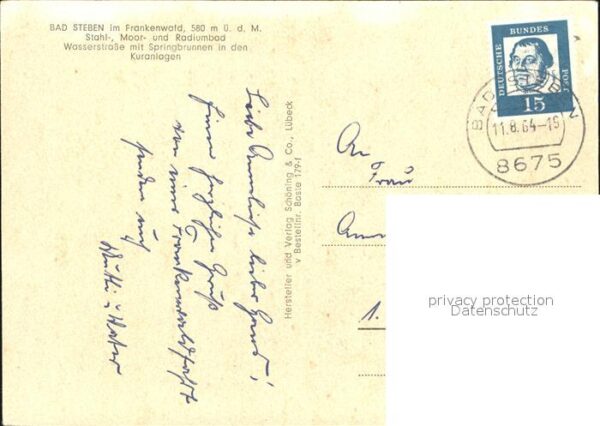 BAD STEBEN im Frankenwald, 580 m ü. d. M.
Stahl-, Moor- und Radiumbad
Wasserstraße mit Springbrunnen in den
Kuranlagen
Liebe Annelies lieber Hans!
Einen herzlichen Gruß
von einer Frankenwaldfahrt
senden euch
Mutti u Vater
Hersteller und Verlag Schöning & Co., Lübeck
v Bestellnr. Baste 179-f
DEUTSCHE BUNDES POST
15
BAD STEBEN
11.8.64-15
8675
An
Frau
1.
privacy protection
Datenschutz